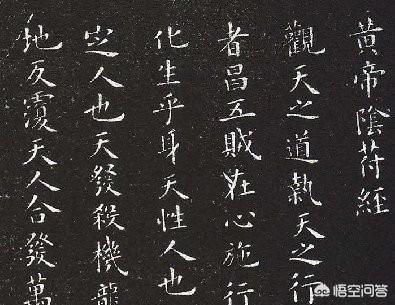 黃帝陰符經
觀天之道執天之行
者昌五賊在心施行
化生乎身天性人也
定人也天發殺機龍
地反覆天人合發萬
悟空问答